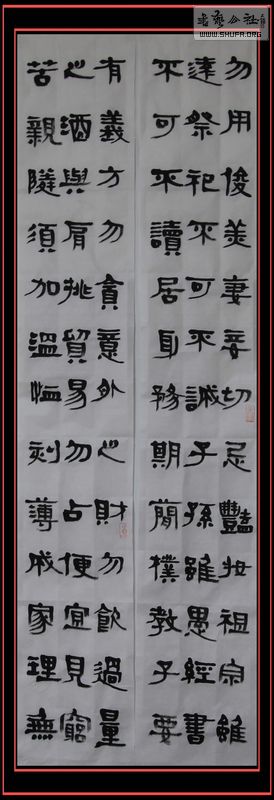 勿用俊美妻妾切忌豔妝祖宗雖
遠祭祀不可不誠子孫雖愚經書
不可不讀居身務期簡樸教子要
有義方勿貪意外之財勿飲過量
之酒與肩挑貿易勿占便宜見窮
苦親隣須加溫恤刻薄成家理無
WWW.SHUFA.ORG